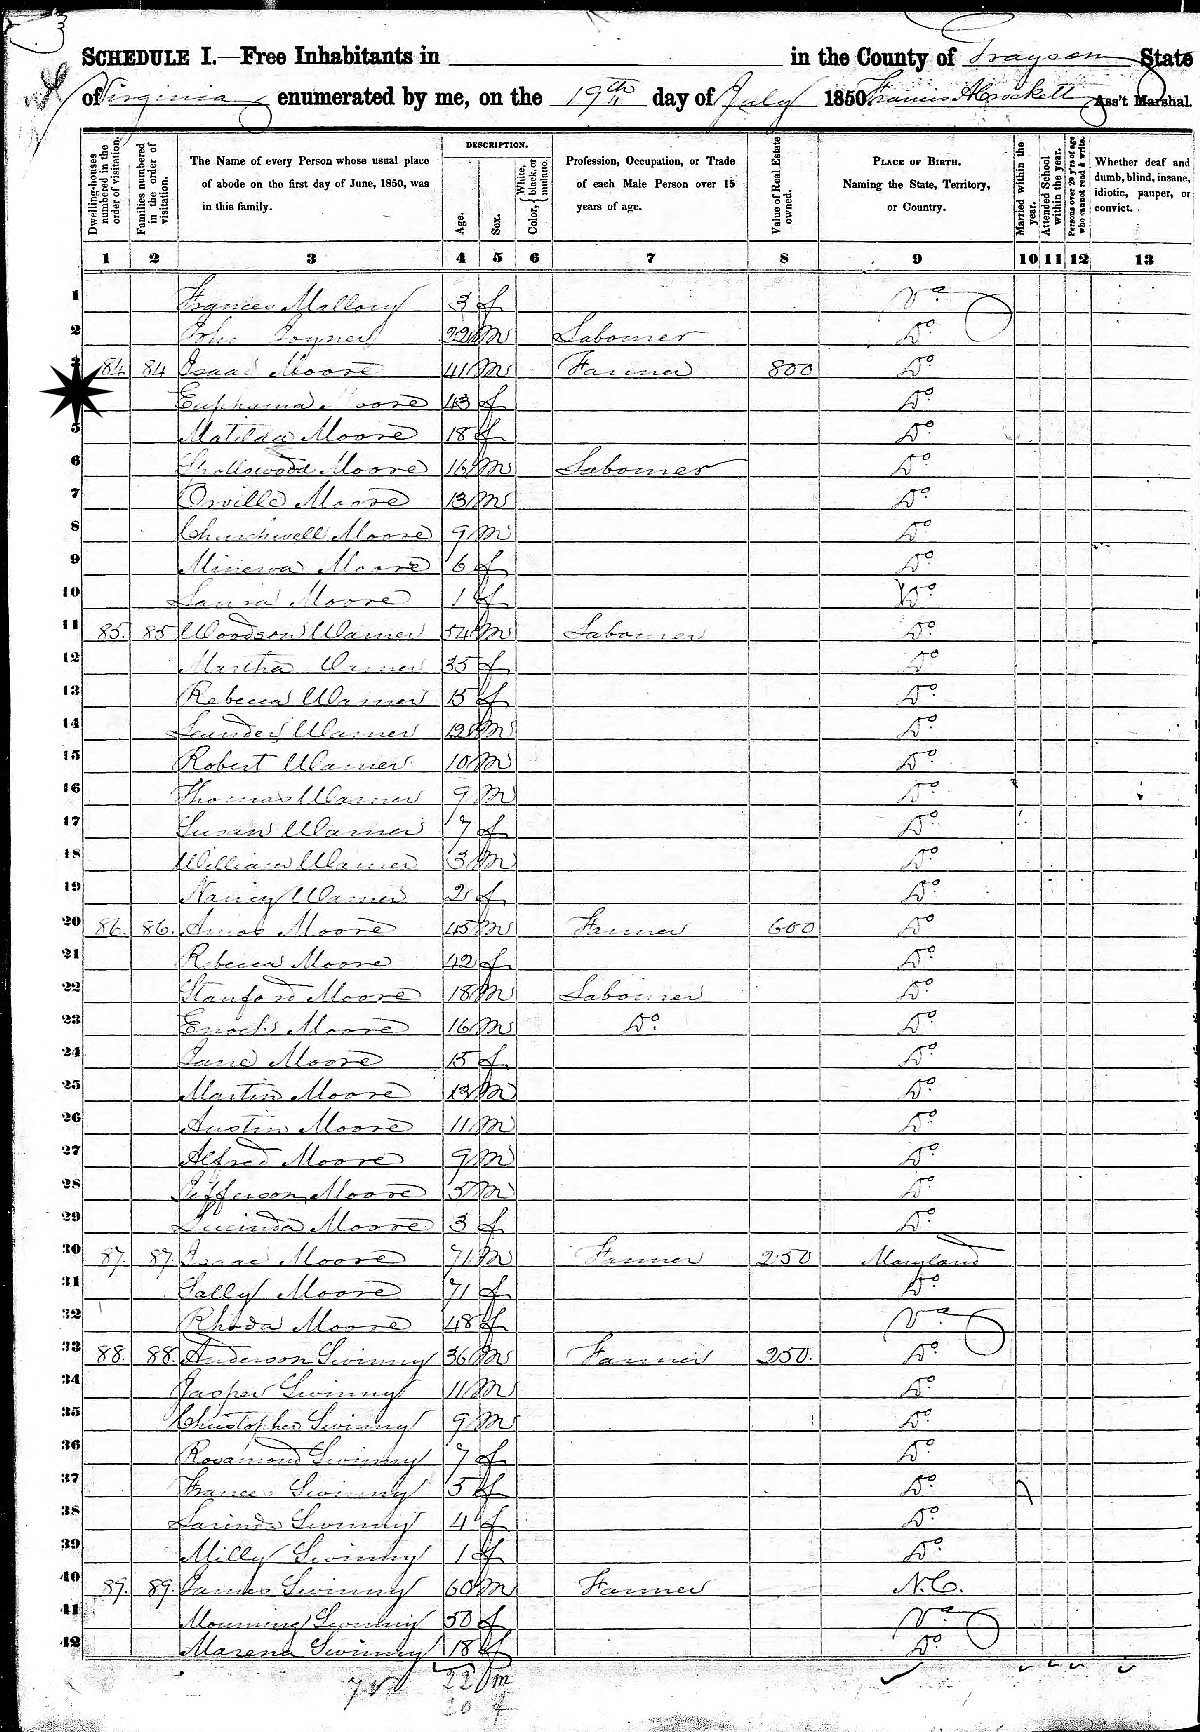 SCHEDULE I.—Free Inhabitants in in the County of Grayson State
of Virginia enumerated by me, on the 19th day of July 1850. Francis A Crockett Ass't Marshal.
Dwelling-houses numbered in the order of visitation.
Families numbered in the order of visitation.
The Name of every Person whose usual place of abode on the first day of June, 1850, was in this family.
DESCRIPTION.
Age.
Sex.
Color, White, black, or mulatto.
Profession, Occupation, or Trade of each Male Person over 15 years of age.
Value of Real Estate owned.
PLACE OF BIRTH. Naming the State, Territory, or Country.
Married within the year.
Attended School within the year.
Persons over 20 y'rs of age who cannot read & write.
Whether deaf and dumb, blind, insane, idiotic, pauper, or convict.
1 2 3 4 5 6 7 8 9 10 11 12 13
1 Frances Mallory 3 f Va
2 John 22 m Labourer Do
84 84 Isaac Moore 41 m Farmer 800 Do
Euphama Moore 43 f Do
5 Matilda Moore 18 f Do
6 Moore 16 m Labourer Do
7 Orville Moore 13 m Do
8 Churchwell Moore 9 m Do
9 Minerva Moore 6 f Do
10 Laura Moore 1 f Do
11 85. 85 Woodson Warner 54 m Labourer Do
12 Martha Warner 35 f Do
13 Rebecca Warner 15 f Do
14 Leander Warner 12 m Do
15 Robert Warner 10 m Do
16 Thomas Warner 9 m Do
17 Susan Warner 7 f Do
18 William Warner 3 m Do
19 Nancy Warner 2 f Do
20 86. 86. Amos Moore 45 m Farmer 600 Do
21 Rebecca Moore 42 f Do
22 Stanford Moore 18 m Labourer Do
23 Enoch Moore 16 m Do Do
24 Jane Moore 15 f Do
25 Martin Moore 13 m Do
26 Austin Moore 11 m Do
27 Alfred Moore 9 m Do
28 Jefferson Moore 5 m Do
29 Lucinda Moore 3 f Do
30 87. 87. Isaac Moore 71 m Farmer 250 Maryland
31 Sally Moore 71 f Do
32 Rhoda Moore 48 f Va
33 88. 88. Anderson Swinny 36 m Farmer 250. Do
34 Jasper Swinny 11 m Do
35 Christopher Swinny 9 m Do
36 Rosamond Swinny 7 f Do
37 Frances Swinny 5 f Do
38 Larinda Swinny 4 f Do
39 Milly Swinny 1 f Do
40 89. 89. James Swinny 60 m Farmer N.C.
41 Mourning Swinny 50 f Va
42 Marena Swinny 18 f Do
22 m
20 f